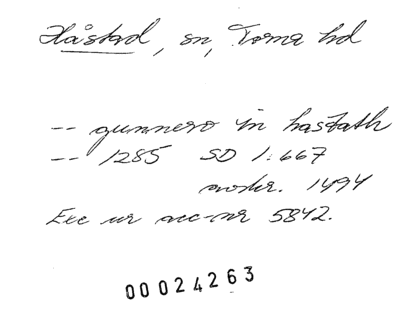 Håstad, sn, Torna hd
-- gunnero in hastath
-- 1285 SD 1:667
avskr. 1494
Exc ur acc-nr 5842.
00024263